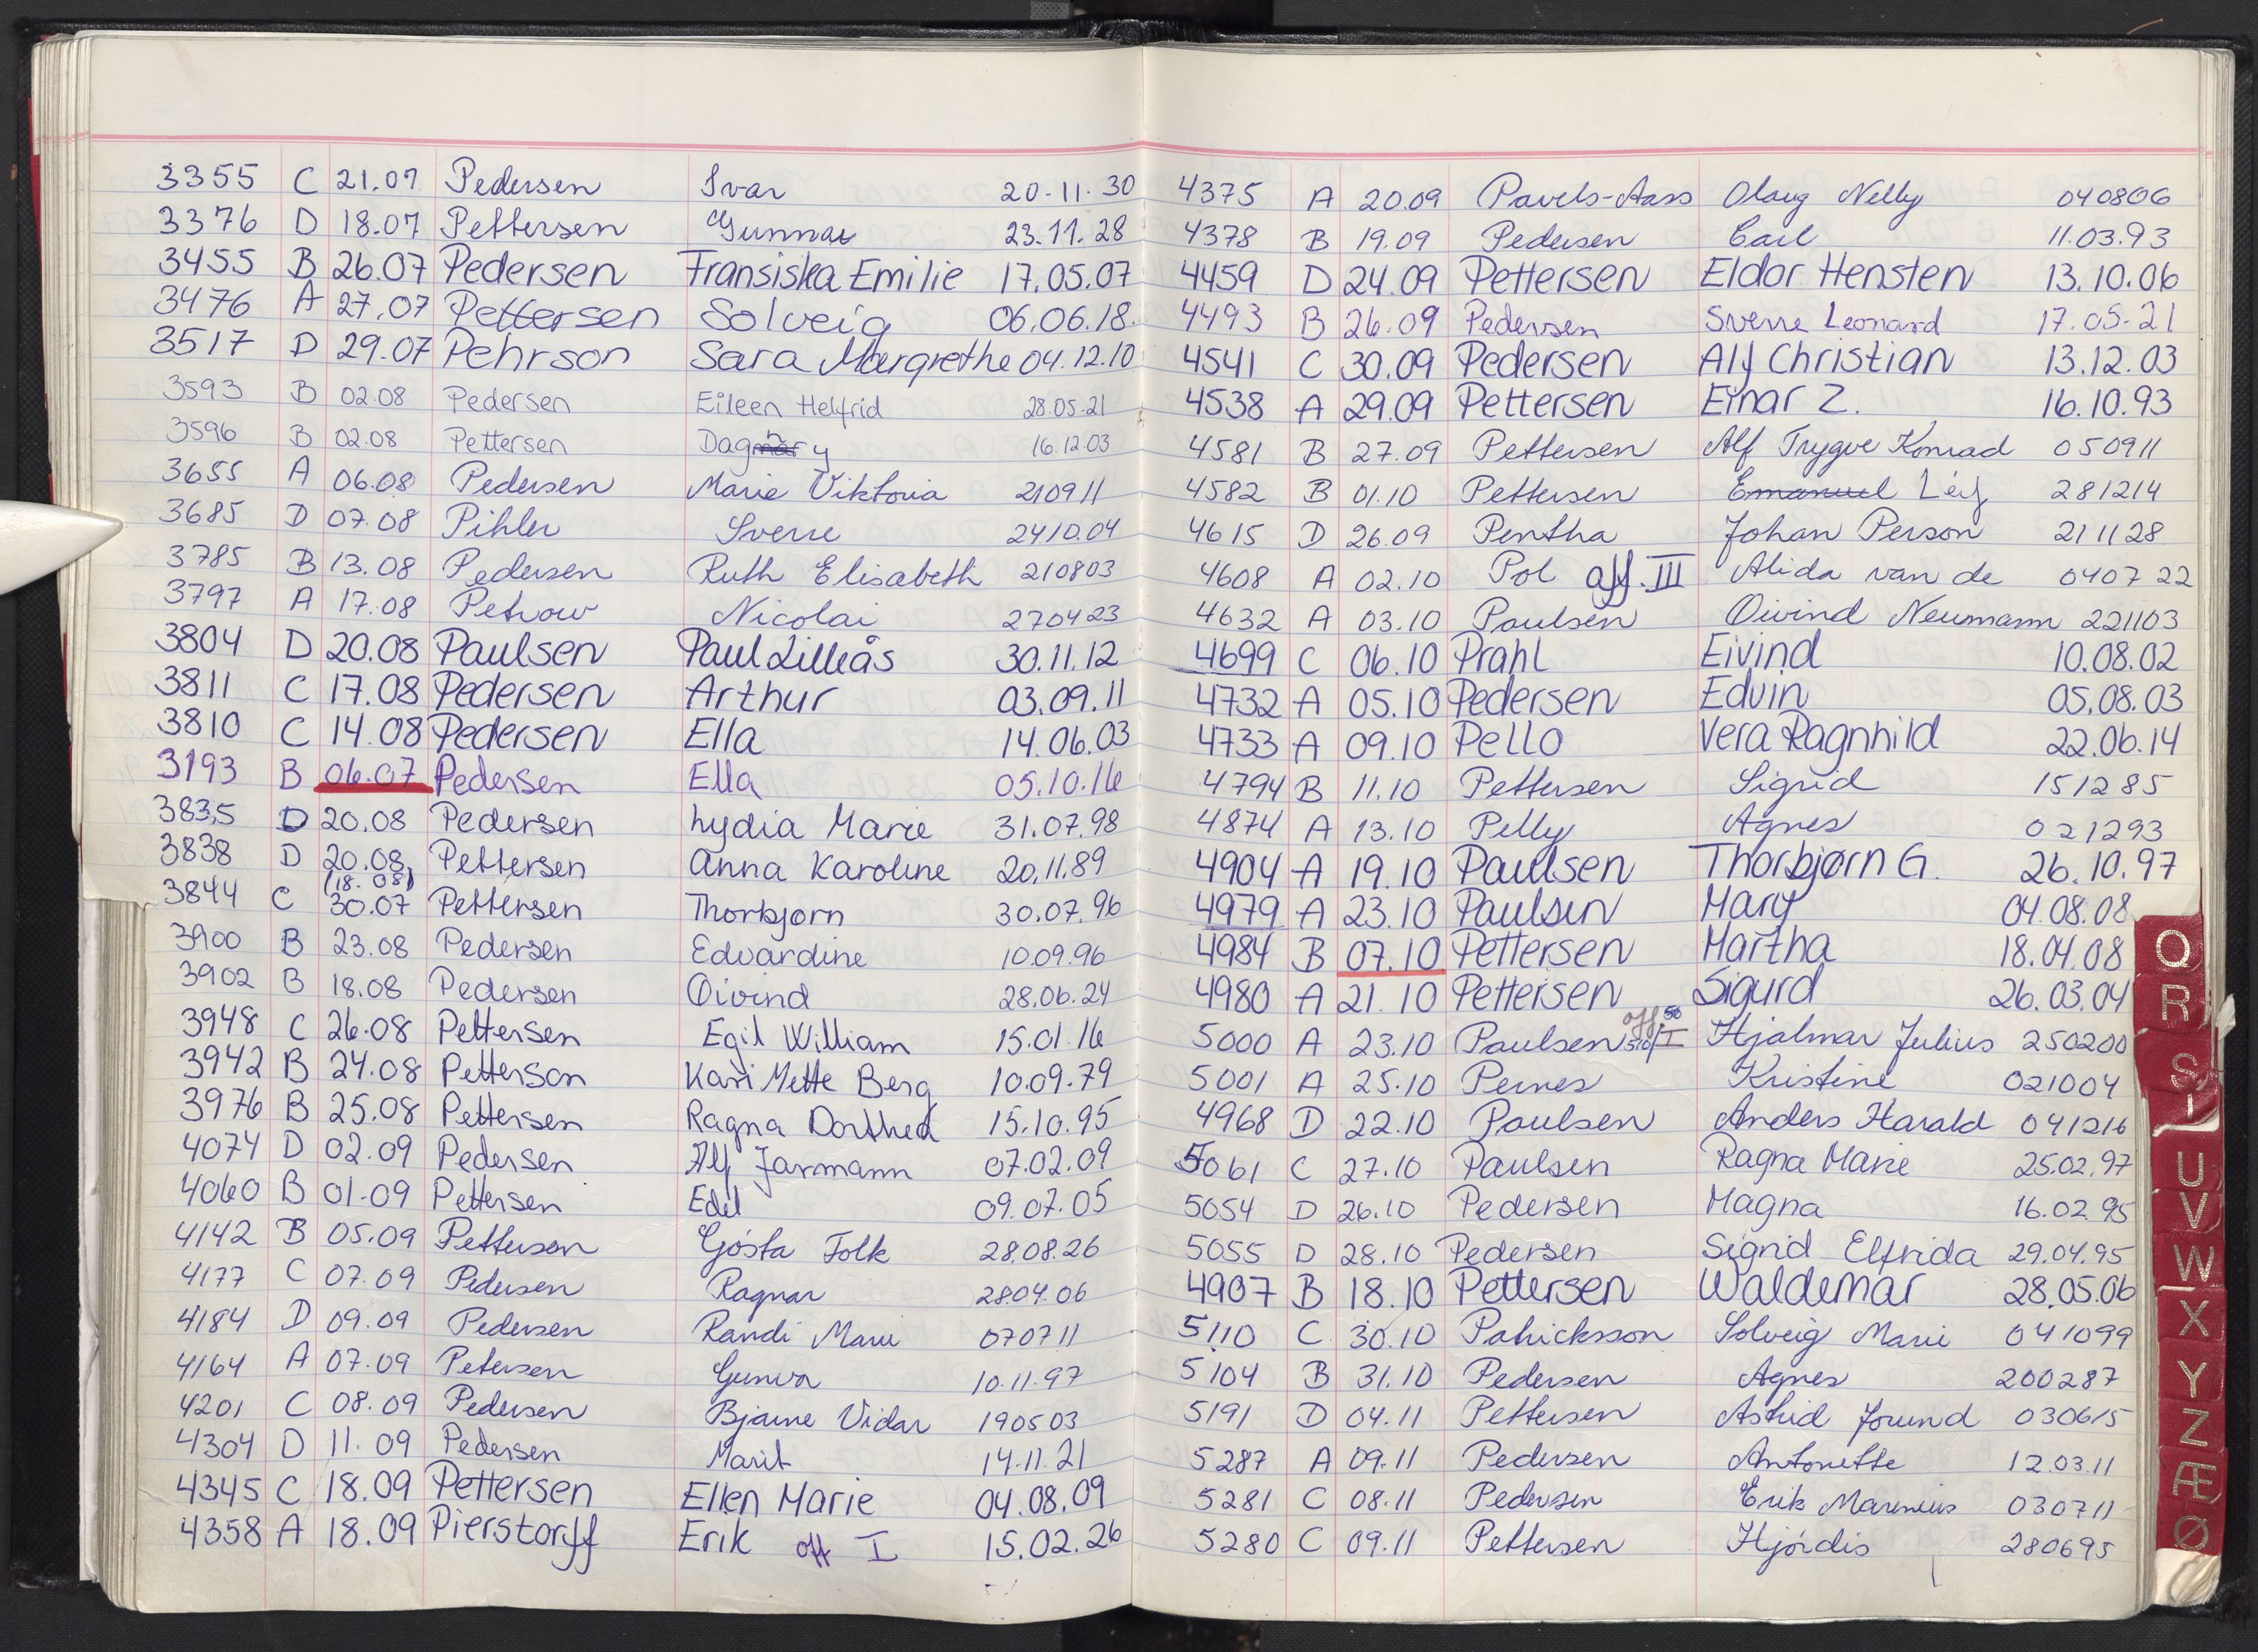 3355 C 21.07 Pedersen Ivar 20-11.30
3376 D 18.07 Pettersen Gunnar 23.11.28
3455 B 26.07 Pedersen Fransiska Emilie 17.05.07
3476 A 27.07 Pettersen Solveig 06.06.18.
3517 D 29.07 Pehrson Sara Margrethe 04.12.10
3593 B 02.08 Pedersen Eileen Helfrid 28.05.21
3596 B 02.08 Pettersen Dagny 16.12.03
3655 A 06.08 Pedersen Marie Viktoria 210911
3685 D 07.08 Pihler Sverre 2410.04
3785 B 13.08 Pedersen Ruth Elisabeth 210803
3797 A 17.08 Petrow Nicolai 270423
3804 D 20.08 Paulsen Paul Lilleås 30.11.12
3811 C 17.08 Pedersen Arthur 03.09.11
3810 C 14.08 Pedersen Ella 14.06.03
3193 B 06.07 Pedersen Ella 05.10.16
3835 D 20.08 Pedersen Lydia Marie 31.07.98
3838 D 20.08 Pettersen Anna Karoline 20.11.89
(18.08)
3844 C 30.07 Pettersen Thorbjørn 30.07.96
3900 B 23.08 Pedersen Edvardine 10.09.96
3902 B 18.08 Pedersen Øivind 28.06.24
3948 C 26.08 Pettersen Egil William 15.01.16
3942 B 24.08 Petterson Kari Mette Berg 10.09.79
3976 B 25.08 Pettersen Ragna Dorthea 15.10.95
4074 D 02.09 Pedersen Alf Jarmann 07.02.09
4060 B 01.09 Pettersen Edel 09.07.05
4142 B 05.09 Petterson Gösta Folk 28.08.26
4177 C 07.09 Pedersen Ragnar 2804.06
4184 D 09.09 Pedersen Randi Marie 070711
4164 A 07.09 Petersen Gunvor 10.11.97
4201 C 08.09 Pedersen Bjarne Vidar 190503
4304 D 11.09 Pedersen Marit 14.11.21
4345 C 18.09 Pettersen Ellen Marie 04.08.09
4358 A 18.09 Pierstorff Erik off I 15.02.26
4375 A 20.09 Pavels-Aass Olaug Nelly 040806
4378 B 19.09 Pedersen Carl 11.03.93
4459 D 24.09 Pettersen Eldor Hensten 13.10.06
4493 B 26.09 Pedersen Sverre Leonard 17.05.21
4541 C 30.09 Pedersen Alf Christian 13.12.03
4538 A 29.09 Pettersen Einar Z. 16.10.93
4581 B 27.09 Pettersen Alf Trygve Konrad 050911
4582 B 01.10 Pettersen Emanuel Leif 281214
4615 D 26.09 Pentha Johan Person 211128
4608 A 02.10 Pol aff. III Alida van de 040722
4632 A 03.10 Paulsen Øivind Neumann 221103
4699 C 06.10 Prahl Eivind 10.08.02
4732 A 05.10 Pedersen Edvin 05.08.03
4733 A 09.10 Pello Vera Ragnhild 22.06.14
4794 B 11.10 Pettersen Sigrid 151285
4874 A 13.10 Pelly Agnes 021293
4904 A 19.10 Paulsen Thorbjørn G. 26.10.97
4979 A 23.10 Paulsen Mary 04.08.08
4984 B 07.10 Pettersen Martha 18.04.08
4980 A 21.10 Pettersen Sigurd 26.03.04
5000 A 23.10 Paulsen off I Hjalmar Julius 250200
5001 A 25.10 Pernes Kristine 021004
4968 D 22.10 Paulsen Anders Harald 041216
5061 C 27.10 Paulsen Ragna Marie 25.02.97
5054 D 26.10 Pedersen Magna 16.02.95
5055 D 28.10 Pedersen Sigrid Elfrida 29.04.95
4907 B 18.10 Pettersen Waldemar 28.05.06
5110 C 30.10 Patricksson Solveig Marie 041099
5104 B 31.10 Pedersen Agnes 200287
5191 D 04.11 Pettersen Astrid Jorund 030615
5287 A 09.11 Pedersen Antonette 12.03.11
5281 C 08.11 Pedersen Erik Marenius 030711
5280 C 09.11 Pettersen Hjördis 280695
Q
R
S
U
V
W
X
Y
Z
Æ
Ø